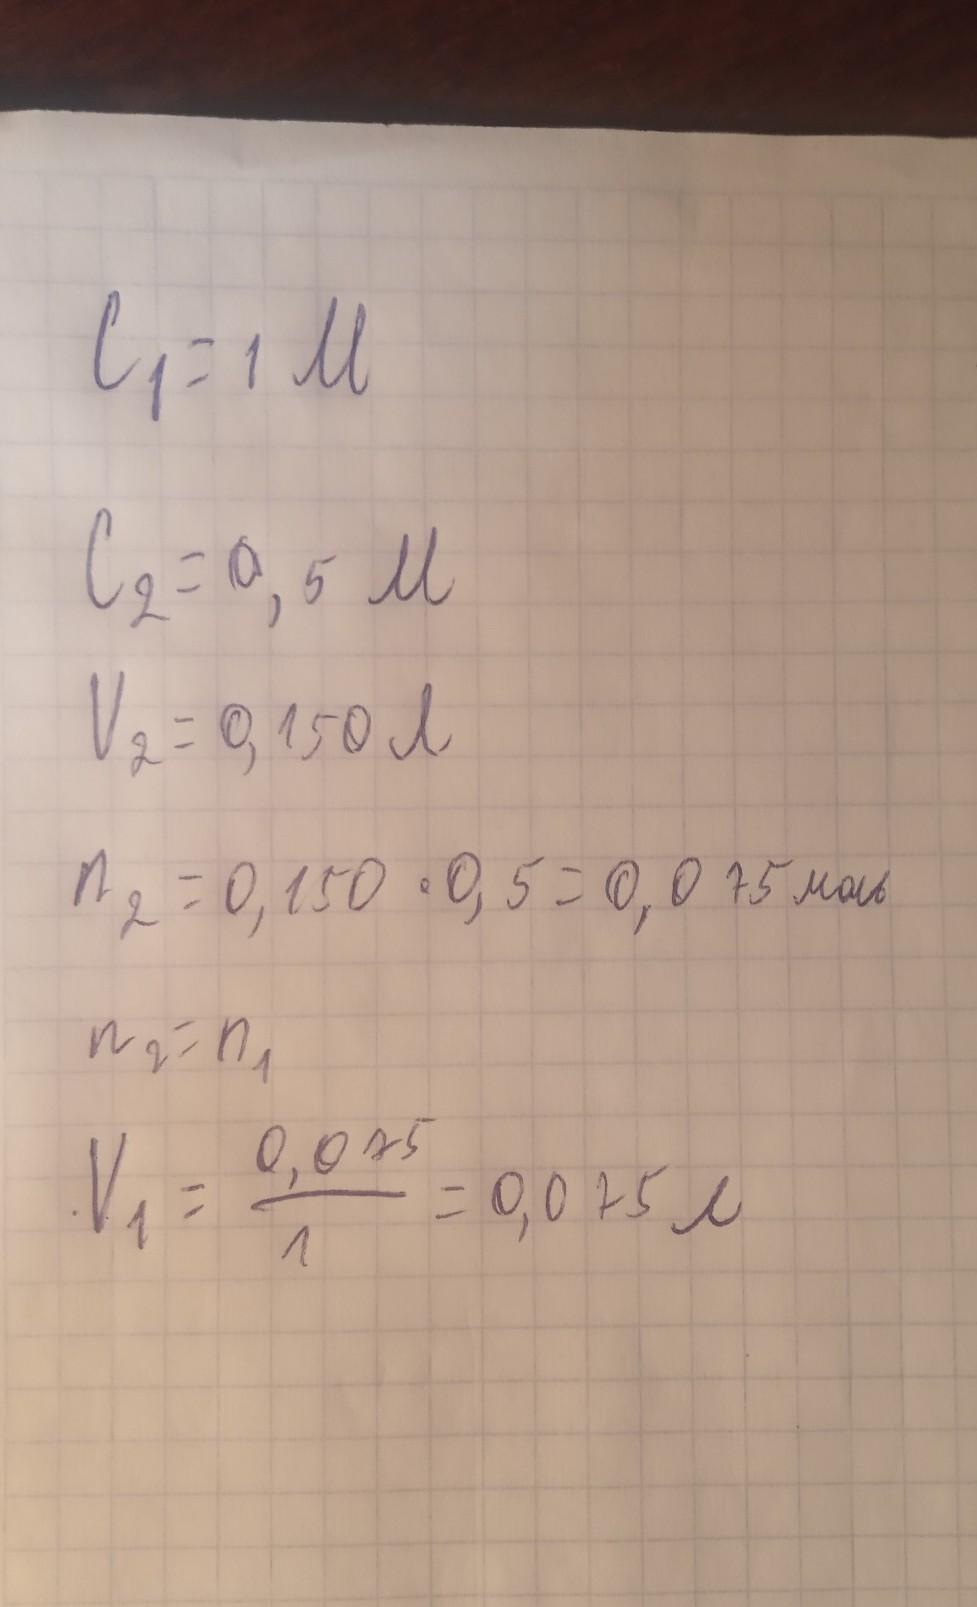 C₁ = 1 М
C₂ = 0,5 М
V₂ = 0,150 л
n₂ = 0,150 · 0,5 = 0,075 моль
n₂ = n₁
V₁ = 0,075/1 = 0,075 л